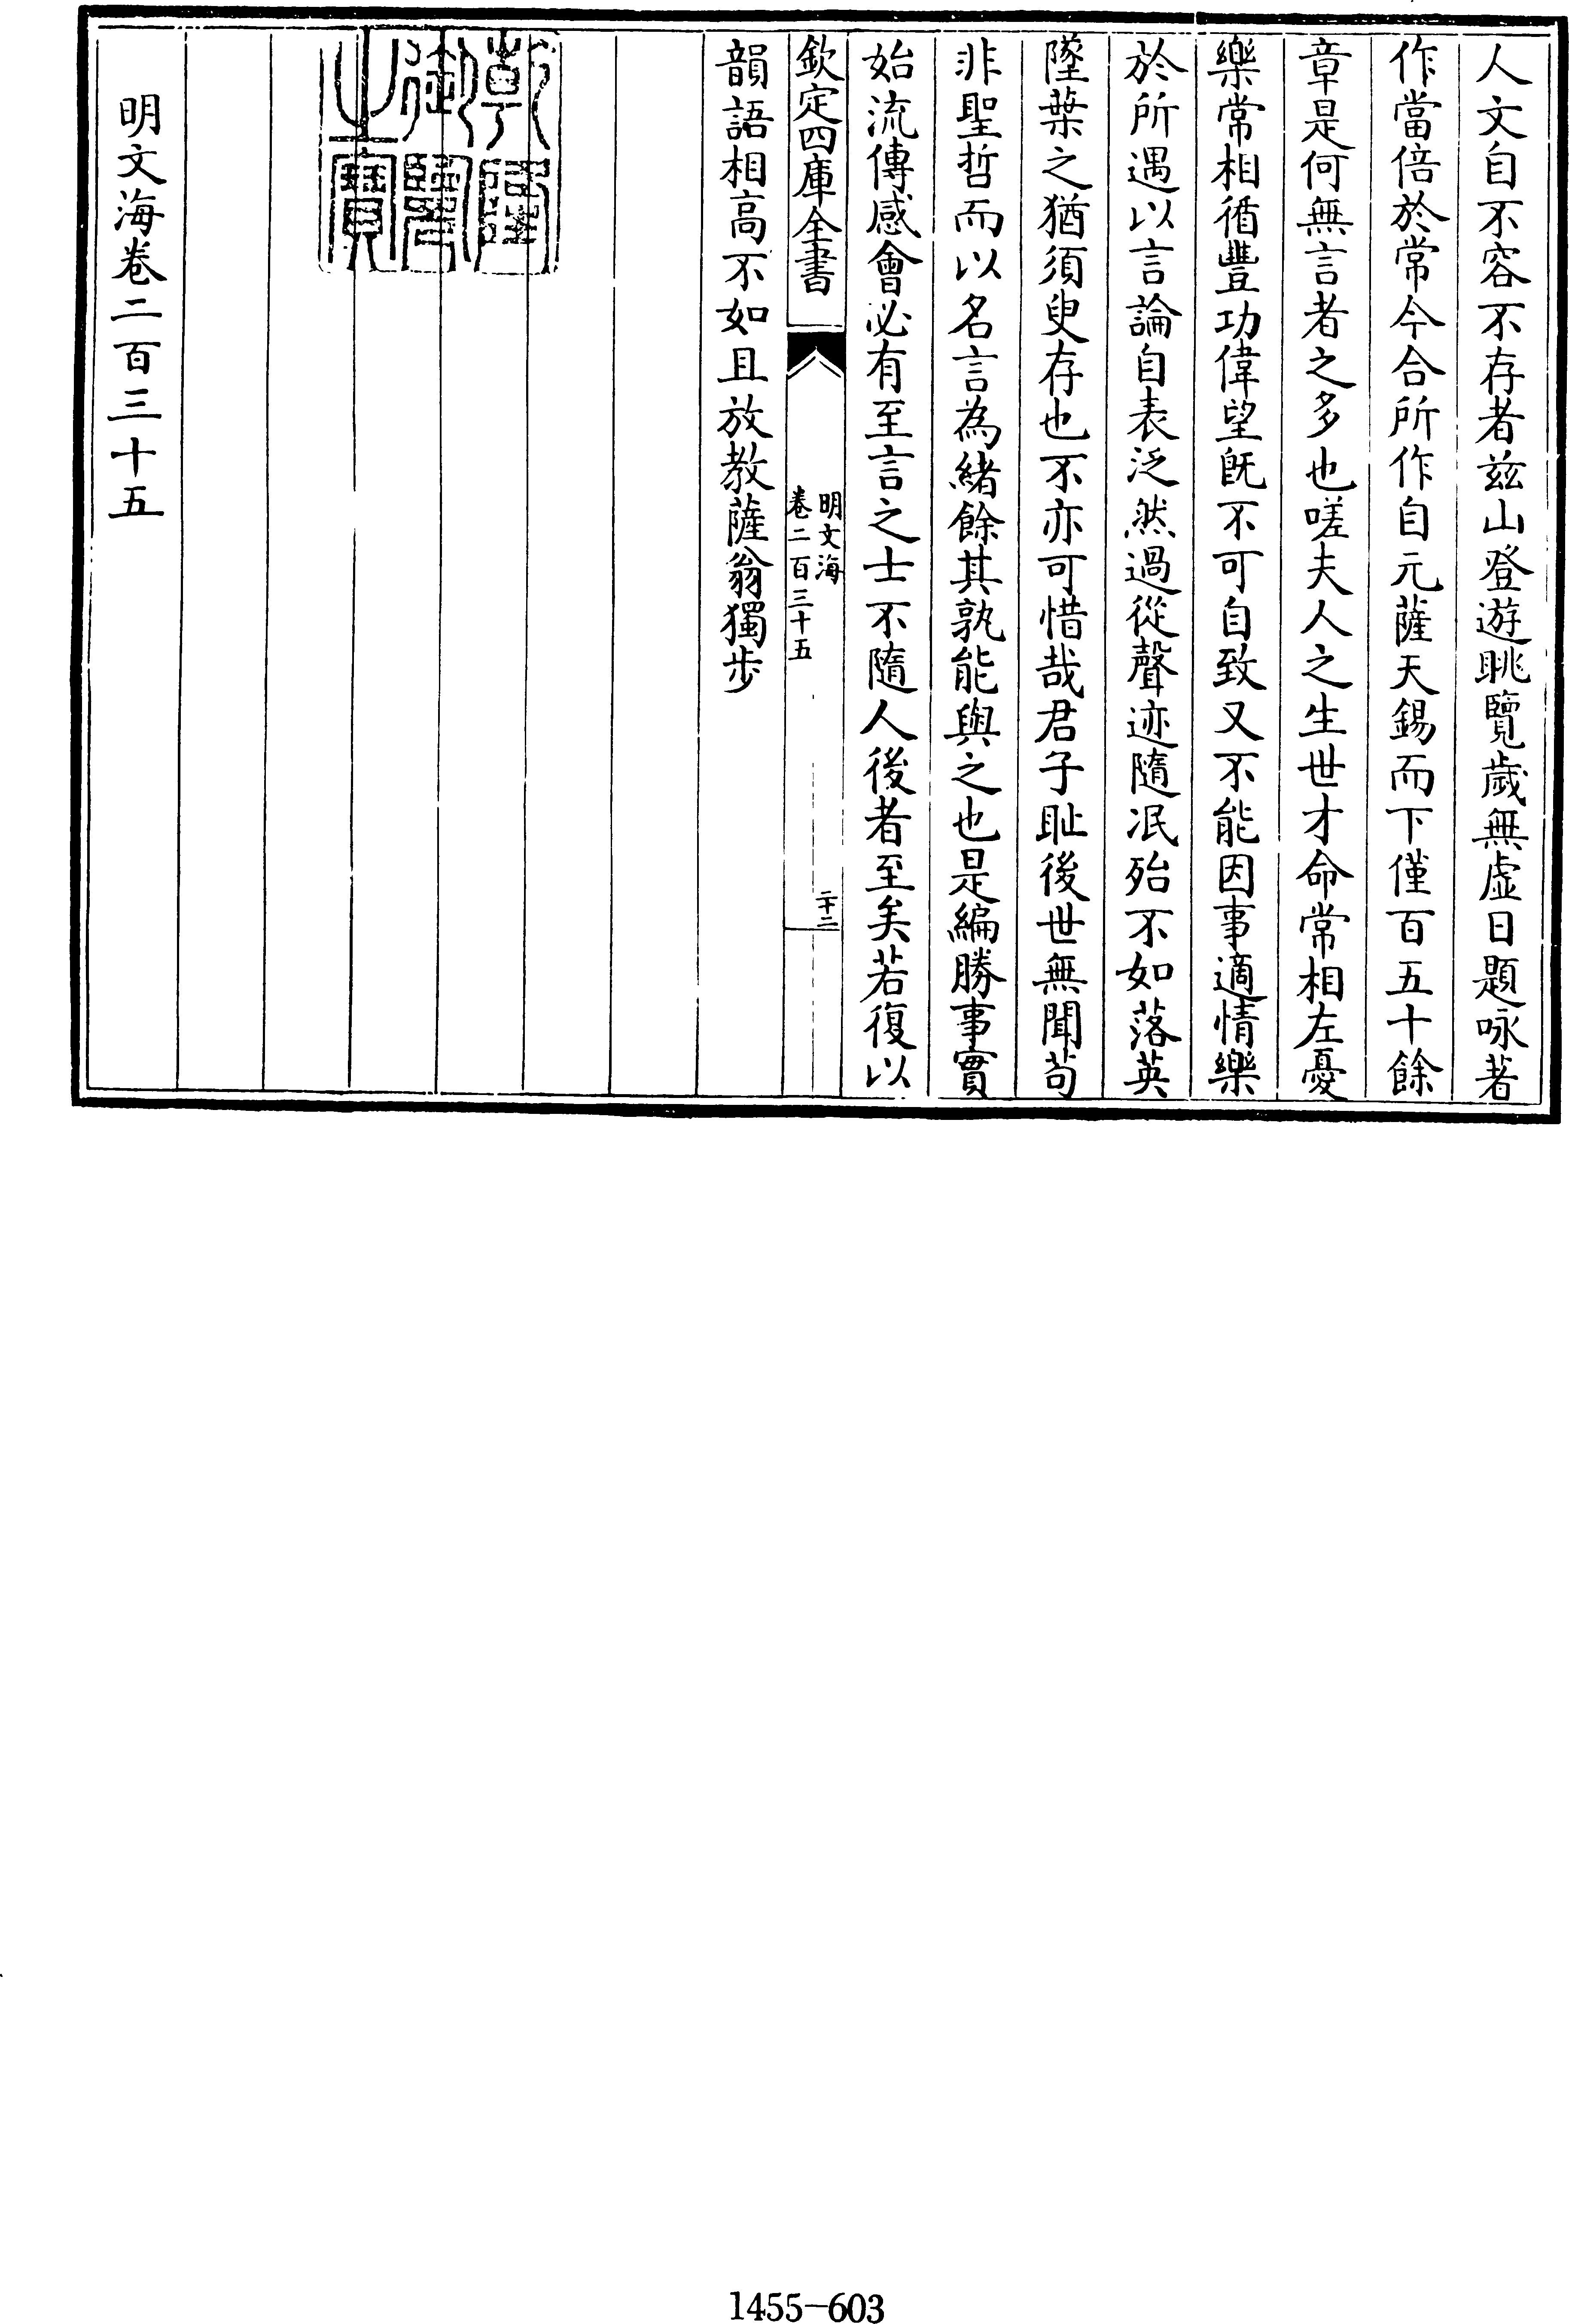 人文自不容不存者兹山登遊眺覽歲無虛日題咏著
作當倍於常今合所作自元薩天錫而下僅百五十餘
章是何無言者之多也嗟夫人之生世才命常相左憂
樂常相循豐功偉望既不可自致又不能因事適情樂
於所遇以言論自表泛然過從聲迹隨泯殆不如落英
墜葉之猶須臾存也不亦可惜哉君子恥後世無聞茍
非聖哲而以名言為緒餘其孰能與之也是編勝事實
始流傳感會必有至言之士不隨人後者至矣若復以
欽定四庫全書
明文海
卷二百三十五
二十二
韻語相高不如且放教薩翁獨步
乾隆御覽之寶
明文海卷二百三十五
1455-603